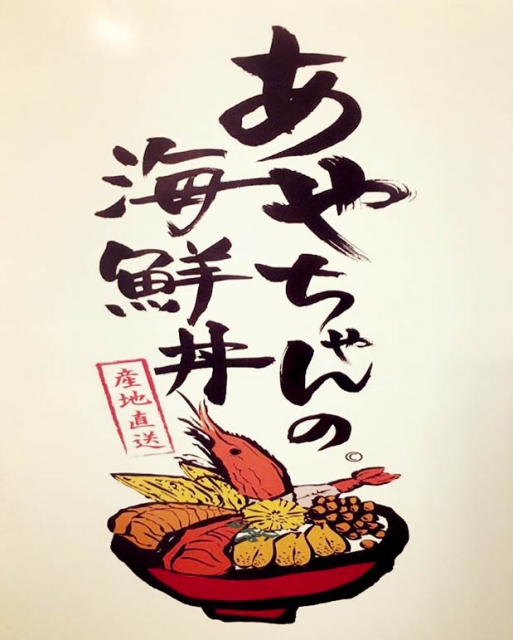 あやちゃんの
海鮮丼
産地直送
©